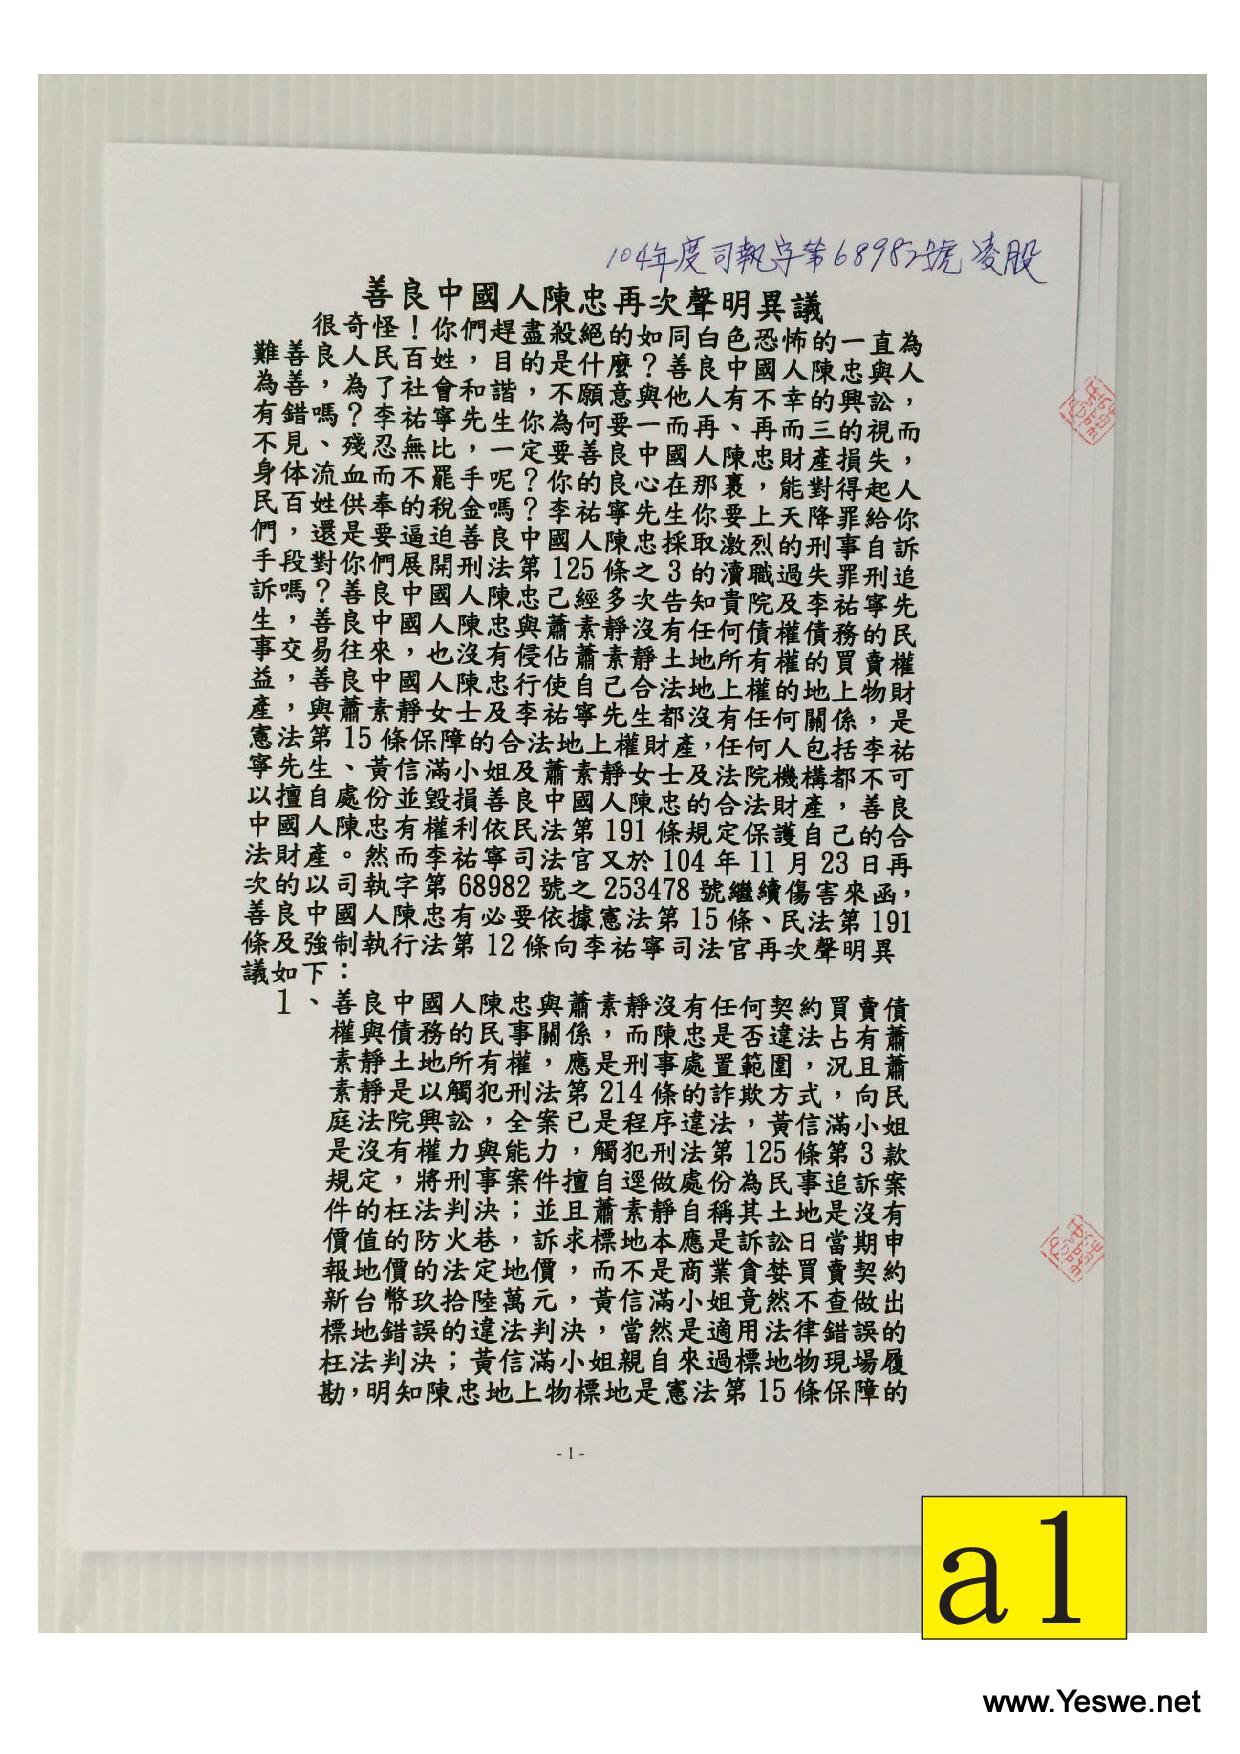 104年度司執字第68982號凌股
善良中國人陳忠再次聲明異議
很奇怪！你們趕盡殺絕的如同白色恐怖的一直為
難善良人民百姓，目的是什麼？善良中國人陳忠與人
為善，為了社會和諧，不願意與他人有不幸的興訟，
有錯嗎？李祐寧先生你為何要一而再、再而三的視而
不見、殘忍無比，一定要善良中國人陳忠財產損失，
身体流血而不罷手呢？你的良心在那裏，能對得起人
民百姓供奉的稅金嗎？李祐寧先生你要上天降罪給你
們，還是要逼迫善良中國人陳忠採取激烈的刑事自訴
手段對你們展開刑法第125條之3的瀆職過失罪刑追
訴嗎？善良中國人陳忠己經多次告知貴院及李祐寧先
生，善良中國人陳忠與蕭素靜沒有任何債權債務的民
事交易往來，也沒有侵佔蕭素靜土地所有權的買賣權
益，善良中國人陳忠行使自己合法地上權的地上物財
產，與蕭素靜女士及李祐寧先生都沒有任何關係，是
憲法第15條保障的合法地上權財產，任何人包括李祐
寧先生、黃信滿小姐及蕭素靜女士及法院機構都不可
以擅自處份並毀損善良中國人陳忠的合法財產，善良
中國人陳忠有權利依民法第191條規定保護自己的合
法財產。然而李祐寧司法官又於104年11月23日再
次的以司執字第68982號之253478號繼續傷害來函，
善良中國人陳忠有必要依據憲法第15條、民法第191
條及強制執行法第12條向李祐寧司法官再次聲明異
議如下：
1、善良中國人陳忠與蕭素靜沒有任何契約買賣債
權與債務的民事關係，而陳忠是否違法占有蕭
素靜土地所有權，應是刑事處置範圍，況且蕭
素靜是以觸犯刑法第214條的詐欺方式，向民
庭法院興訟，全案已是程序違法，黃信滿小姐
是沒有權力與能力，觸犯刑法第125條第3款
規定，將刑事案件擅自逕做處份為民事追訴案
件的枉法判決；並且蕭素靜自稱其土地是沒有
價值的防火巷，訴求標地本應是訴訟日當期申
報地價的法定地價，而不是商業貪婪買賣契約
新台幣玖拾陸萬元，黃信滿小姐竟然不查做出
標地錯誤的違法判決，當然是適用法律錯誤的
枉法判決；黃信滿小姐親自來過標地物現場履
勘，明知陳忠地上物標地是憲法第15條保障的
- 1 -
a1
www.Yeswe.net